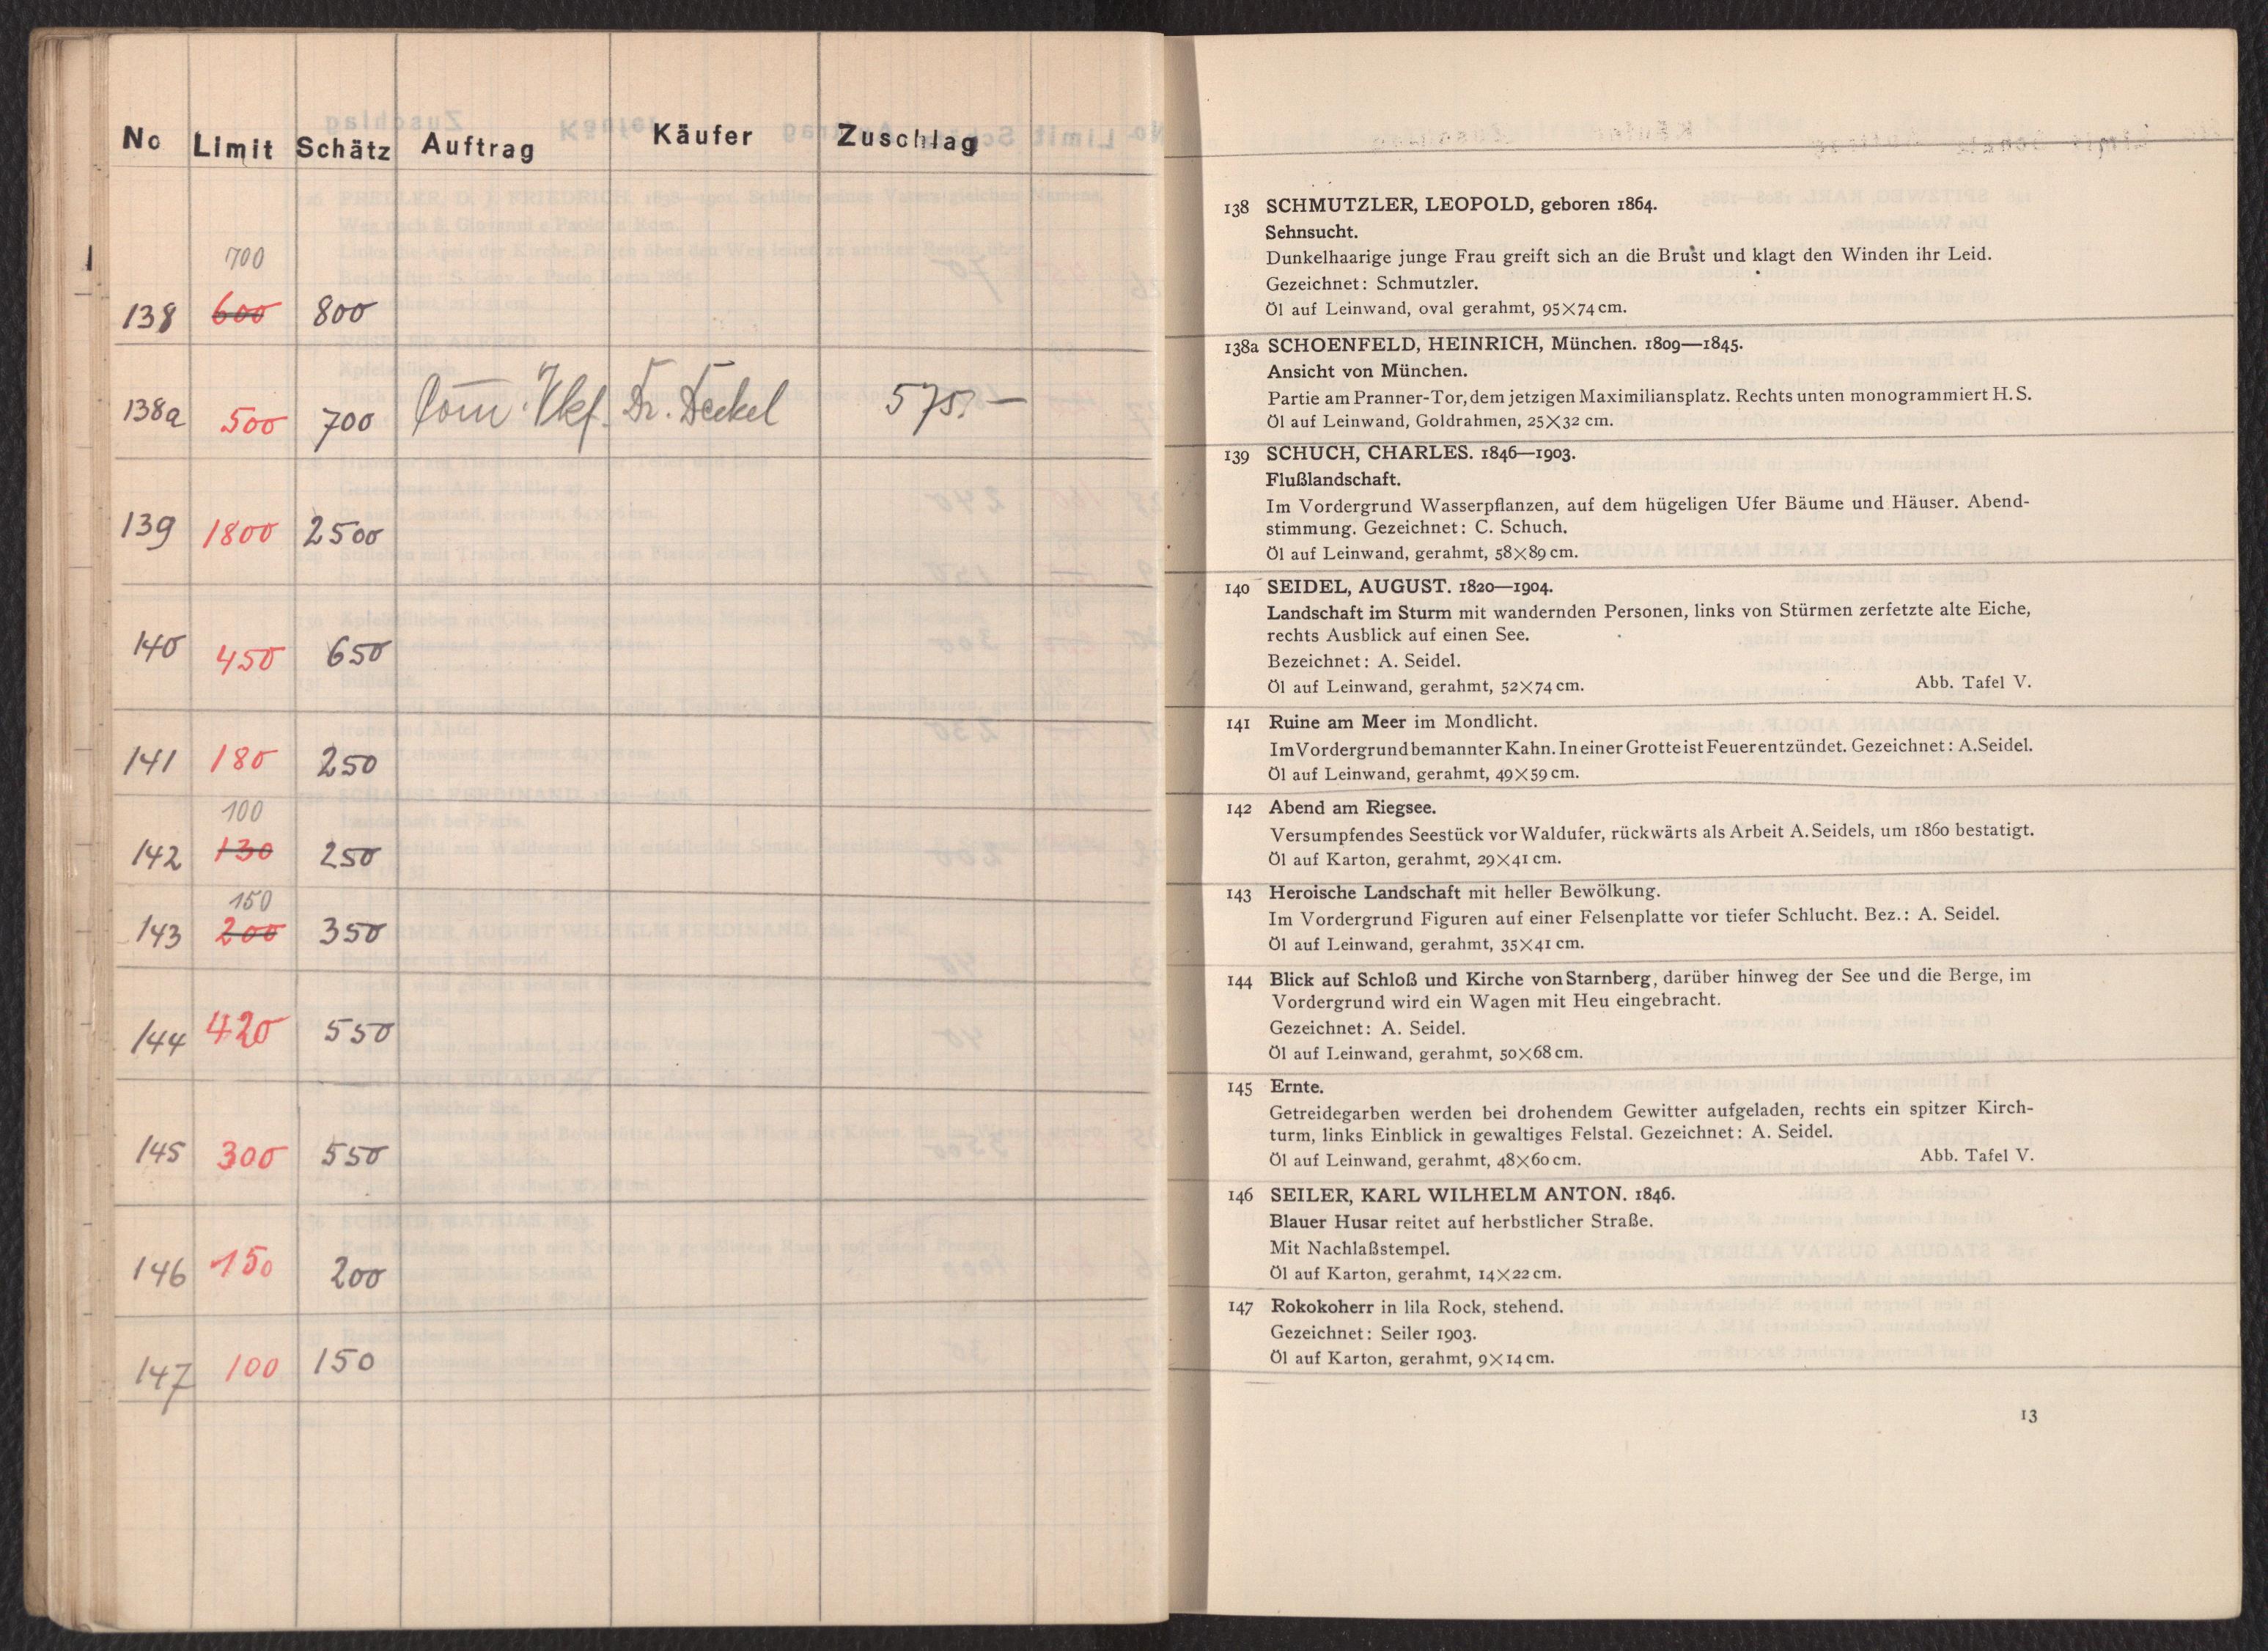 No Limit Schätz Auftrag Käufer Zuschlag
700
138 600 800
138a 500 700 Com. Vkf. Dr. Deckel 575.—
139 1800 2500
140 450 650
141 180 250
100
142 130 250
150
143 200 350
144 420 550
145 300 550
146 150 200
147 100 150
138 SCHMUTZLER, LEOPOLD, geboren 1864.
Sehnsucht.
Dunkelhaarige junge Frau greift sich an die Brust und klagt den Winden ihr Leid.
Gezeichnet: Schmutzler.
Öl auf Leinwand, oval gerahmt, 95×74 cm.
138a SCHOENFELD, HEINRICH, München. 1809—1845.
Ansicht von München.
Partie am Pranner-Tor, dem jetzigen Maximiliansplatz. Rechts unten monogrammiert H. S.
Öl auf Leinwand, Goldrahmen, 25×32 cm.
139 SCHUCH, CHARLES. 1846—1903.
Flußlandschaft.
Im Vordergrund Wasserpflanzen, auf dem hügeligen Ufer Bäume und Häuser. Abend-
stimmung. Gezeichnet: C. Schuch.
Öl auf Leinwand, gerahmt, 58×89 cm.
140 SEIDEL, AUGUST. 1820—1904.
Landschaft im Sturm mit wandernden Personen, links von Stürmen zerfetzte alte Eiche,
rechts Ausblick auf einen See.
Bezeichnet: A. Seidel.
Öl auf Leinwand, gerahmt, 52×74 cm. Abb. Tafel V.
141 Ruine am Meer im Mondlicht.
Im Vordergrund bemannter Kahn. In einer Grotte ist Feuer entzündet. Gezeichnet: A. Seidel.
Öl auf Leinwand, gerahmt, 49×59 cm.
142 Abend am Riegsee.
Versumpfendes Seestück vor Waldufer, rückwärts als Arbeit A. Seidels, um 1860 bestatigt.
Öl auf Karton, gerahmt, 29×41 cm.
143 Heroische Landschaft mit heller Bewölkung.
Im Vordergrund Figuren auf einer Felsenplatte vor tiefer Schlucht. Bez.: A. Seidel.
Öl auf Leinwand, gerahmt, 35×41 cm.
144 Blick auf Schloß und Kirche von Starnberg, darüber hinweg der See und die Berge, im
Vordergrund wird ein Wagen mit Heu eingebracht.
Gezeichnet: A. Seidel.
Öl auf Leinwand, gerahmt, 50×68 cm.
145 Ernte.
Getreidegarben werden bei drohendem Gewitter aufgeladen, rechts ein spitzer Kirch-
turm, links Einblick in gewaltiges Felstal. Gezeichnet: A. Seidel.
Öl auf Leinwand, gerahmt, 48×60 cm. Abb. Tafel V.
146 SEILER, KARL WILHELM ANTON. 1846.
Blauer Husar reitet auf herbstlicher Straße.
Mit Nachlaßstempel.
Öl auf Karton, gerahmt, 14×22 cm.
147 Rokokoherr in lila Rock, stehend.
Gezeichnet: Seiler 1903.
Öl auf Karton, gerahmt, 9×14 cm.
13